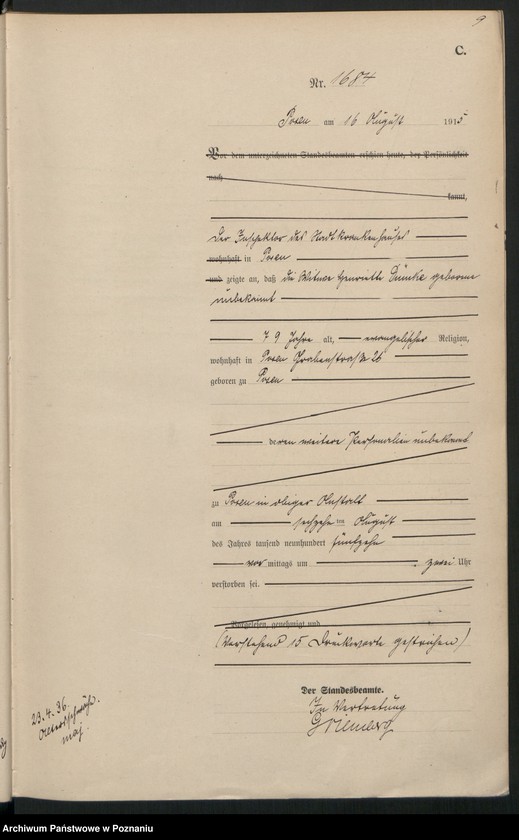 9
C.
Nr. 1684
Posen am 16 August 1915
Vor dem unterzeichneten Standesbeamten erschien heute, der Persönlichkeit
nach
kannt,
Der Inspektor des Stadtkrankenhauses
wohnhaft in Posen
und zeigte an, daß die Witwe Henriette geborene
unbekannt
79 Jahre alt, evangelischer Religion,
wohnhaft in Posen Grabenstraße 26
geboren zu Posen
deren weitere Personalien unbekannt
zu Posen in obiger Anstalt
am sechzehn ten August
des Jahres tausend neunhundert fünfzehn
vor mittags um zwei Uhr
verstorben sei.
Vorgelesen, genehmigt und
(Vorstehend 15 Druckworte gestrichen)
Der Standesbeamte.
In Vertretung
23.4.36.
Archiwum Państwowe w Poznaniu